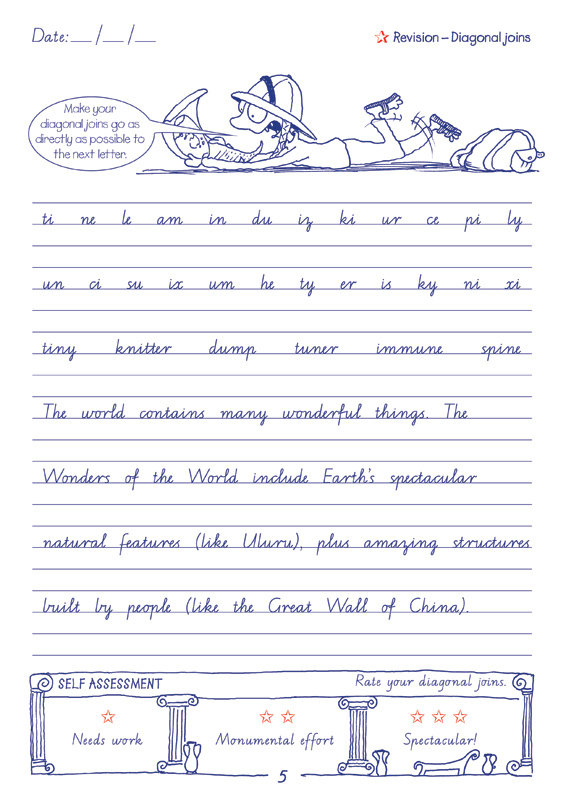 Date: __ / __ / __
Revision – Diagonal joins
Make your
diagonal joins go as
directly as possible to
the next letter.
ti ne le am in du iz ki ur ce pi ly
un ci su ix um he ty er is ky ni xi
tiny knitter dump tuner immune spine
The world contains many wonderful things. The
Wonders of the World include Earth's spectacular
natural features (like Uluru), plus amazing structures
built by people (like the Great Wall of China).
SELF ASSESSMENT
Rate your diagonal joins.
Needs work
Monumental effort
Spectacular!
5